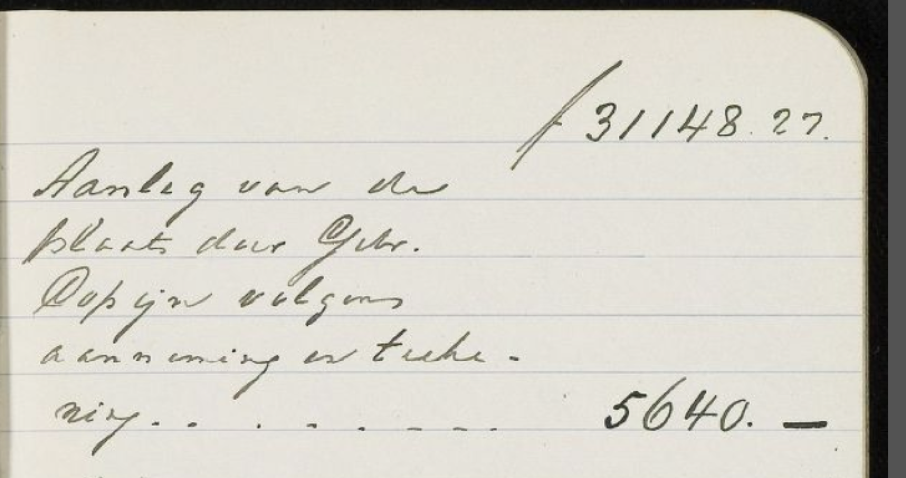 f 31148.27.
Aanleg van de
plaats door Gebr.
Copijn volgens
aanneming en teeke-
ning. . . . . . . . 5640. —